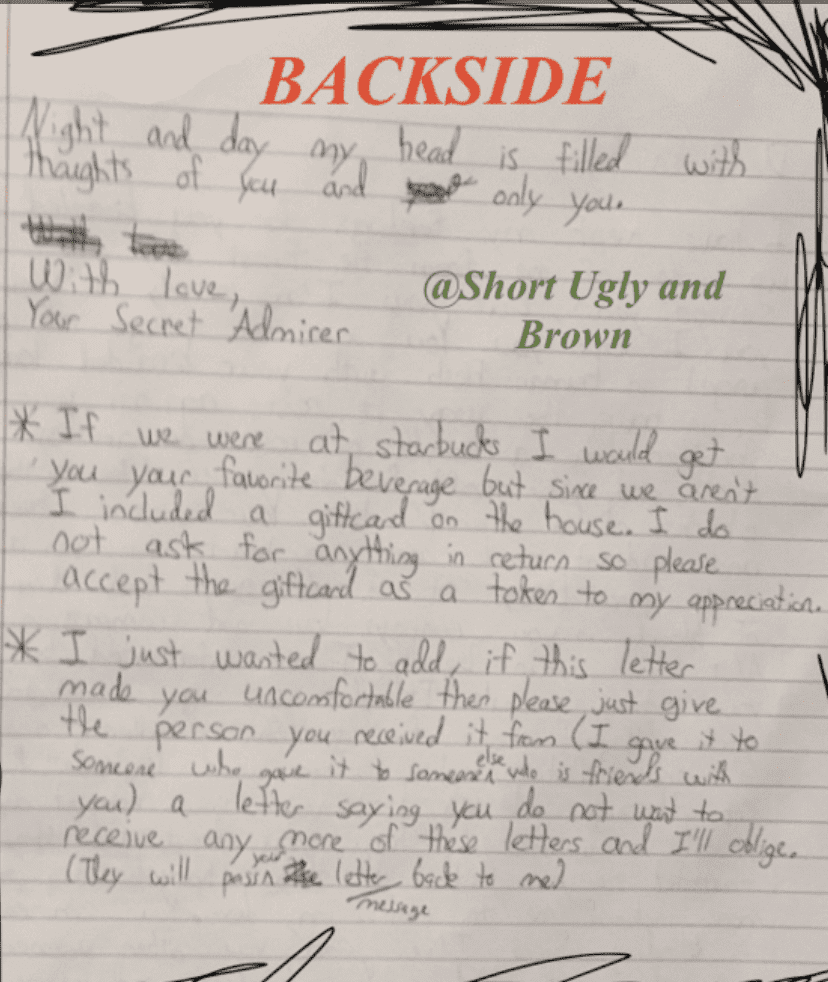 BACKSIDE
Night and day my head is filled with
thoughts of you and only you.
With love,
Your Secret Admirer
@Short Ugly and
Brown
* If we were at starbucks I would get
you your favorite beverage but since we aren't
I included a giftcard on the house. I do
not ask for anything in return so please
accept the giftcard as a token to my appreciation.
* I just wanted to add, if this letter
made you uncomfortable then please just give
the person you received it from (I gave it to
someone who gave it to someone else who is friends with
you) a letter saying you do not want to
receive any more of these letters and I'll oblige.
(They will pass your letter back to me)
message